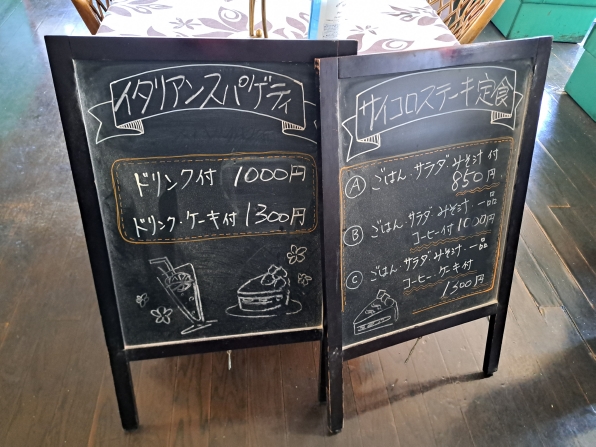 イタリアンスパゲティ
ドリンク付 1000円
ドリンク・ケーキ付 1300円
サイコロステーキ定食
Ⓐ ごはん・サラダ・みそ汁 付
850円
Ⓑ ごはん・サラダ・みそ汁・一品
コーヒー付 1000円
Ⓒ ごはん・サラダ・みそ汁・一品
コーヒー・ケーキ付
1300円